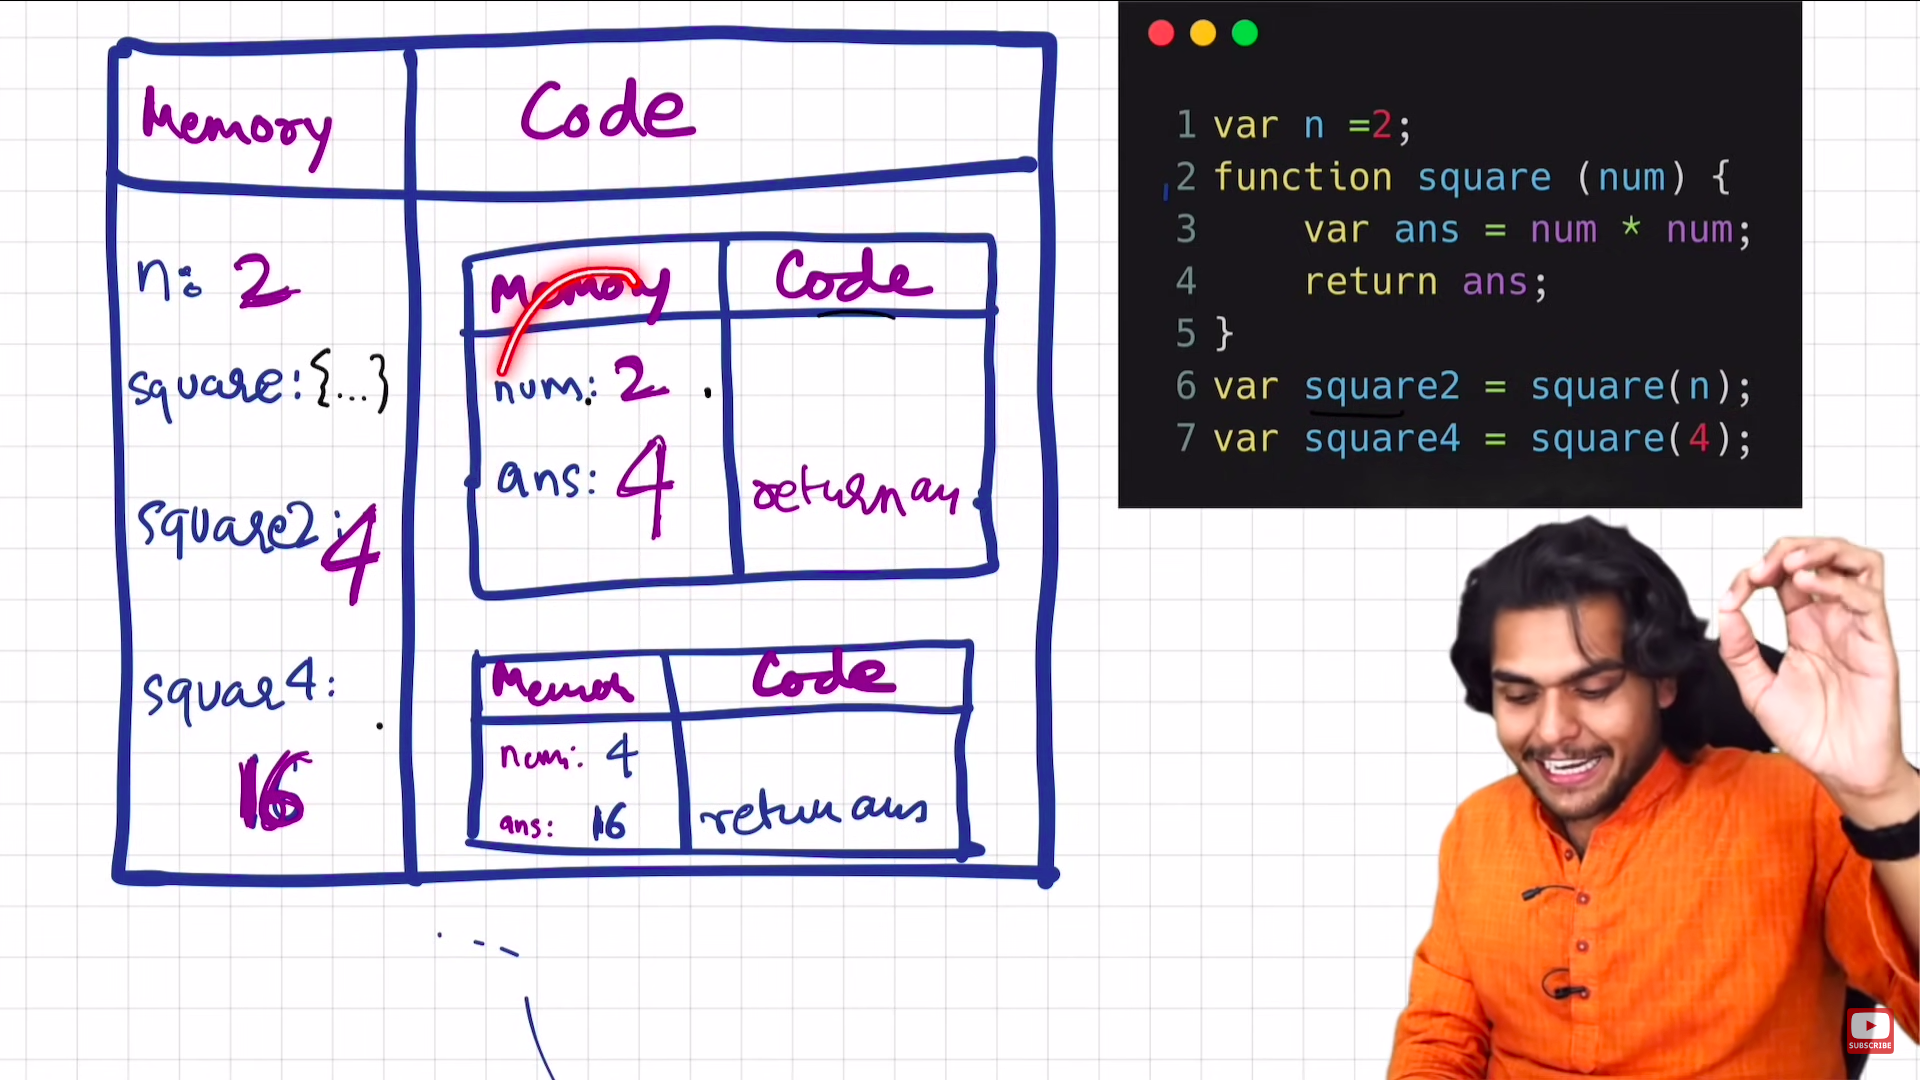 Memory
Code
n: 2
square: {...}
square2: 4
squar4:
16
Memory
Code
num: 2
ans: 4
return an
Code
num: 4
ans: 16
return ans
1 var n =2;
2 function square (num) {
3 var ans = num * num;
4 return ans;
5 }
6 var square2 = square(n);
7 var square4 = square(4);
SUBSCRIBE